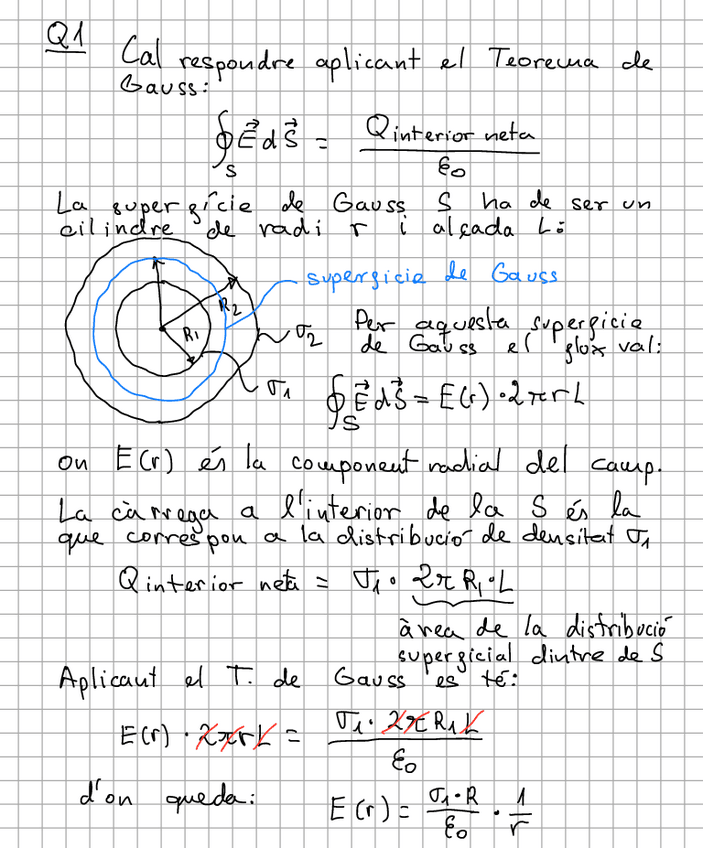 Q1 Cal respondre aplicant el Teorema de
Gauss:
∮_S E⃗ dS⃗ = Q interior neta / ε₀
La superfície de Gauss S ha de ser un
cilindre de radi r i alçada L:
superfície de Gauss
R₂
R₁
σ₂
σ₁
Per aquesta superfície
de Gauss el flux val:
∮_S E⃗ dS⃗ = E(r) · 2πrL
on E(r) és la component radial del camp.
La càrrega a l'interior de la S és la
que correspon a la distribució de densitat σ₁
Q interior neta = σ₁ · 2πR₁·L
àrea de la distribució
superficial dintre de S
Aplicant el T. de Gauss es té:
E(r) · 2πrL = σ₁ · 2πR₁L / ε₀
d'on queda: E(r) = σ₁·R / ε₀ · 1 / r